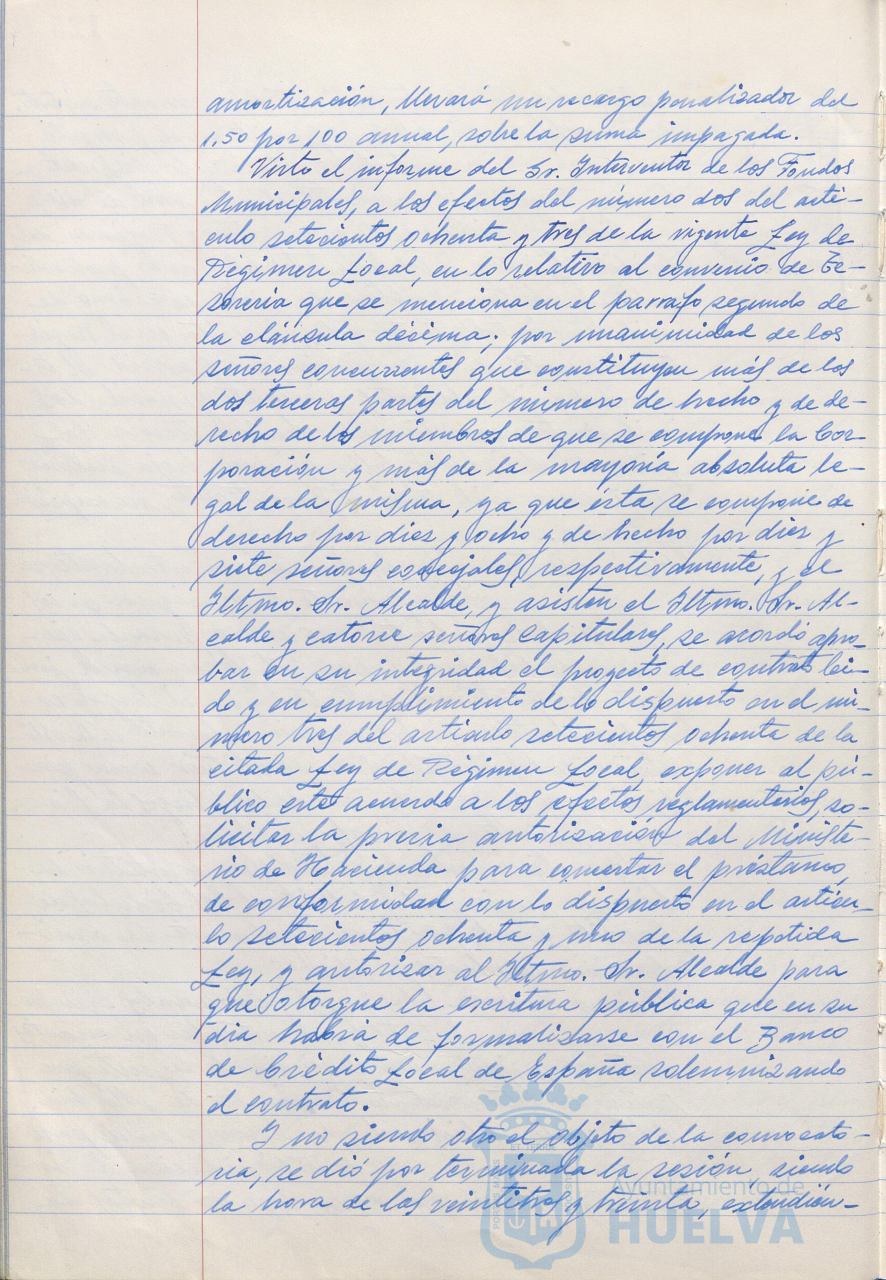 amortización, llevará un recargo penalizador del
1.50 por 100 anual, sobre la suma impagada.
Visto el informe del Sr. Interventor de los Fondos
Municipales, a los efectos del número dos del artí-
culo setecientos ochenta y tres de la vigente Ley de
Régimen Local, en lo relativo al convenio de Te-
sorería que se menciona en el párrafo segundo de
la cláusula décima; por unanimidad de los
señores concurrentes que constituyen más de los
dos terceras partes del número de hecho y de de-
recho de los miembros de que se compone la Cor
poración y más de la mayoría absoluta le-
gal de la misma, ya que ésta se compone de
derecho por diez y ocho y de hecho por diez y
siete señores concejales, respectivamente, y el
Iltmo. Sr. Alcalde, y asisten el Iltmo. Sr. Al-
calde y catorce señores Capitulares, se acordó apro-
bar en su integridad el proyecto de contrato leí-
do y en cumplimiento de lo dispuesto en el nú-
mero tres del artículo setecientos ochenta de la
citada Ley de Régimen Local, exponer al pú-
blico este acuerdo a los efectos reglamentarios, so-
licitar la previa autorización del Ministe-
rio de Hacienda para concertar el préstamo,
de conformidad con lo dispuesto en el artícu-
lo setecientos ochenta y uno de la repetida
Ley, y autorizar al Iltmo. Sr. Alcalde para
que otorgue la escritura pública que en su
día habrá de formalizarse con el Banco
de Crédito Local de España solemnizando
el contrato.
Y no siendo otro el objeto de la convocato-
ria, se dió por terminada la sesión, siendo
la hora de las veintitres y treinta, extendién-
Ayuntamiento de
HUELVA